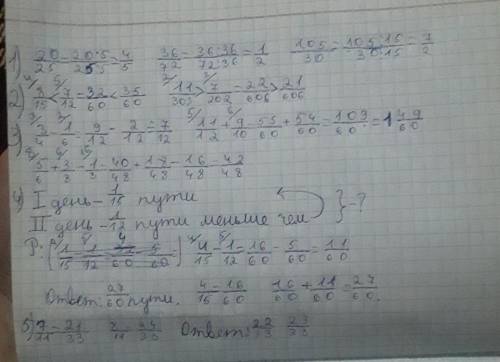 1) 20/25 = 20:5/25:5 = 4/5 36/72 = 36:36/72:36 = 1/2 105/30 = 105:15/30:15 = 7/2
2) 8/15 < 7/12 = 32/60 < 35/60 11/303 > 7/202 = 22/606 > 21/606
3) 3/4 - 1/6 = 9/12 - 2/12 = 7/12 11/12 + 9/10 = 55/60 + 54/60 = 109/60 = 1 49/60
5/6 + 3/8 - 1/3 = 40/48 + 18/48 - 16/48 = 42/48
4) I день - /15 пути
II день - 1/12 пути меньше чем } - ?
Р: 4/15 - 1/12 = 16/60 - 5/60 = 11/60
Ответ: 27/60 пути. 4/15 = 16/60 16/60 + 11/60 = 27/60.
5) 7/11 = 21/33 = 24/33 Ответ: 22/33 23/33